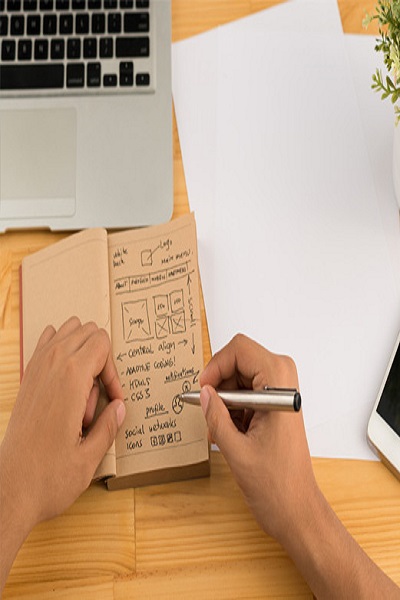 white
back
Logo
Main menu.
ABOUT PORTFOLIO MOBILE
scroll
← Central align →
- ADAPTIVE CODING!
- HTML5
- CSS 3
notifications
profile
social networks
icons